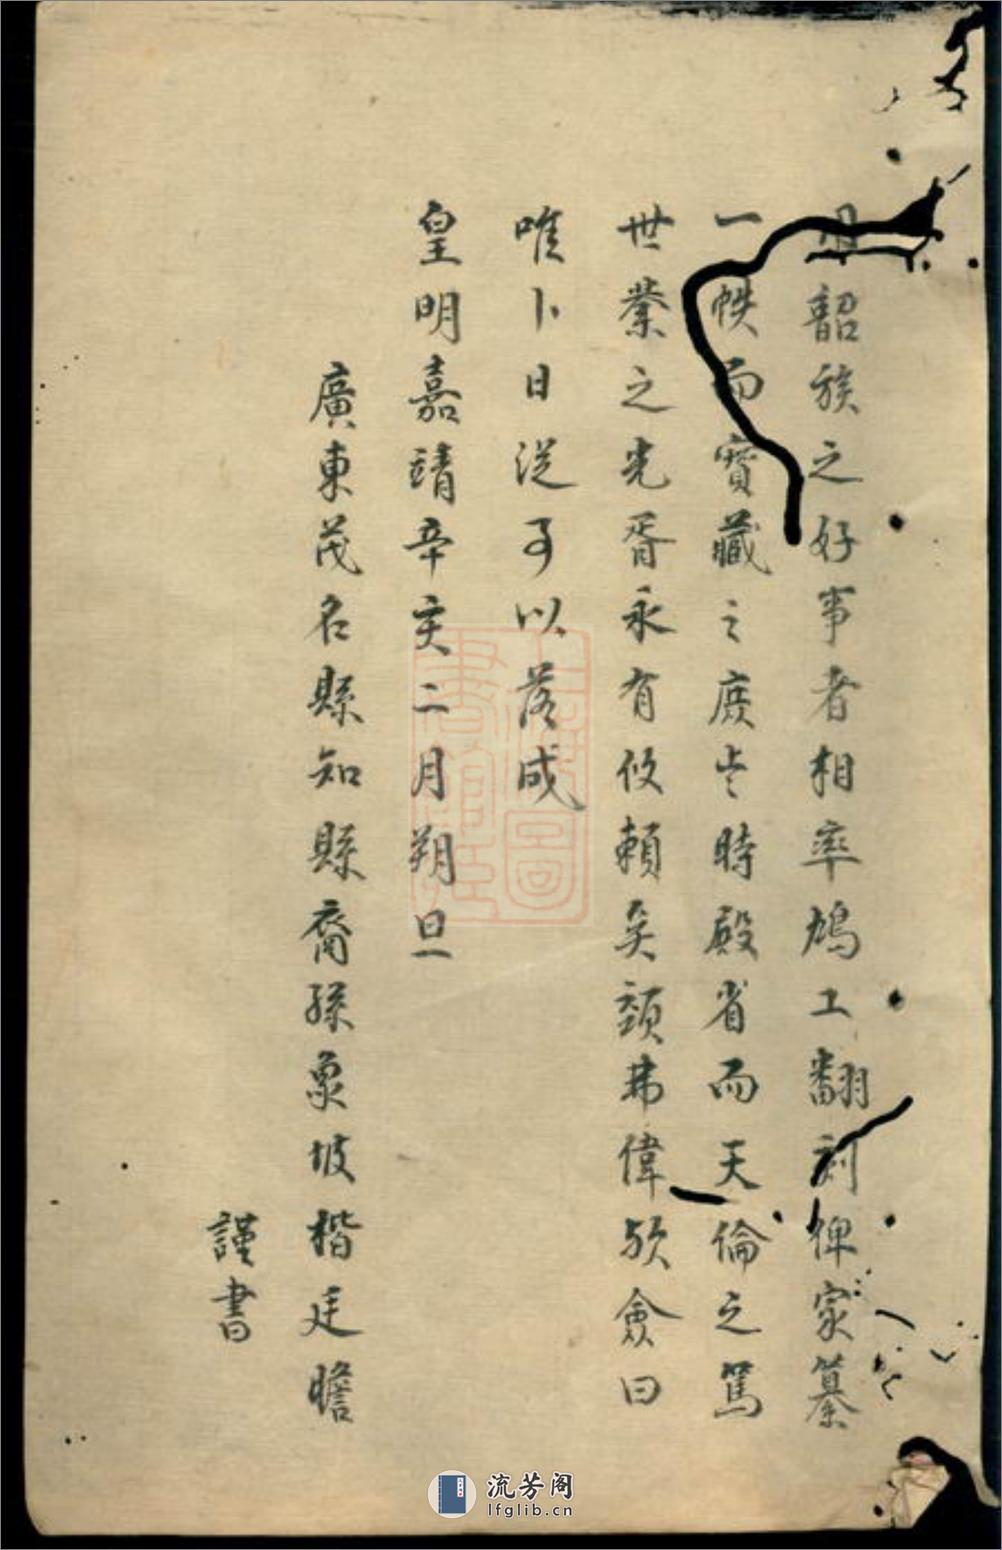 韶族之好事者相率鳩工翻刻俾家纂
一帙而寶藏之庶㞢時殿省而天倫之篤
世業之光胥永有攸賴矣顧弗偉歟僉曰
唯卜日從事以落成
皇明嘉靖辛亥二月朔旦
廣東茂名縣知縣裔孫象坡楷廷瞻
謹書
上海圖書館藏
流芳阁
lfglib.cn